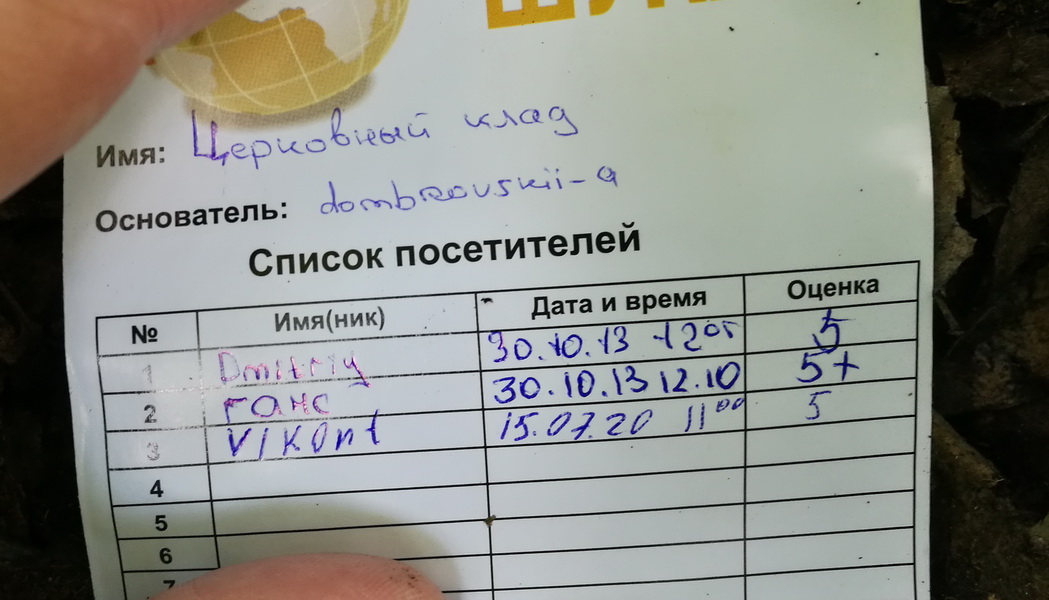 Имя: Церковный клад
Основатель: dombrovskii-a
Список посетителей
№ Имя(ник) Дата и время Оценка
1 Dmitriy 30.10.13 12 05 5
2 ганс 30.10.13 12.10 5+
3 VIKONt 15.07.20 11 00 5
4
5
6
7